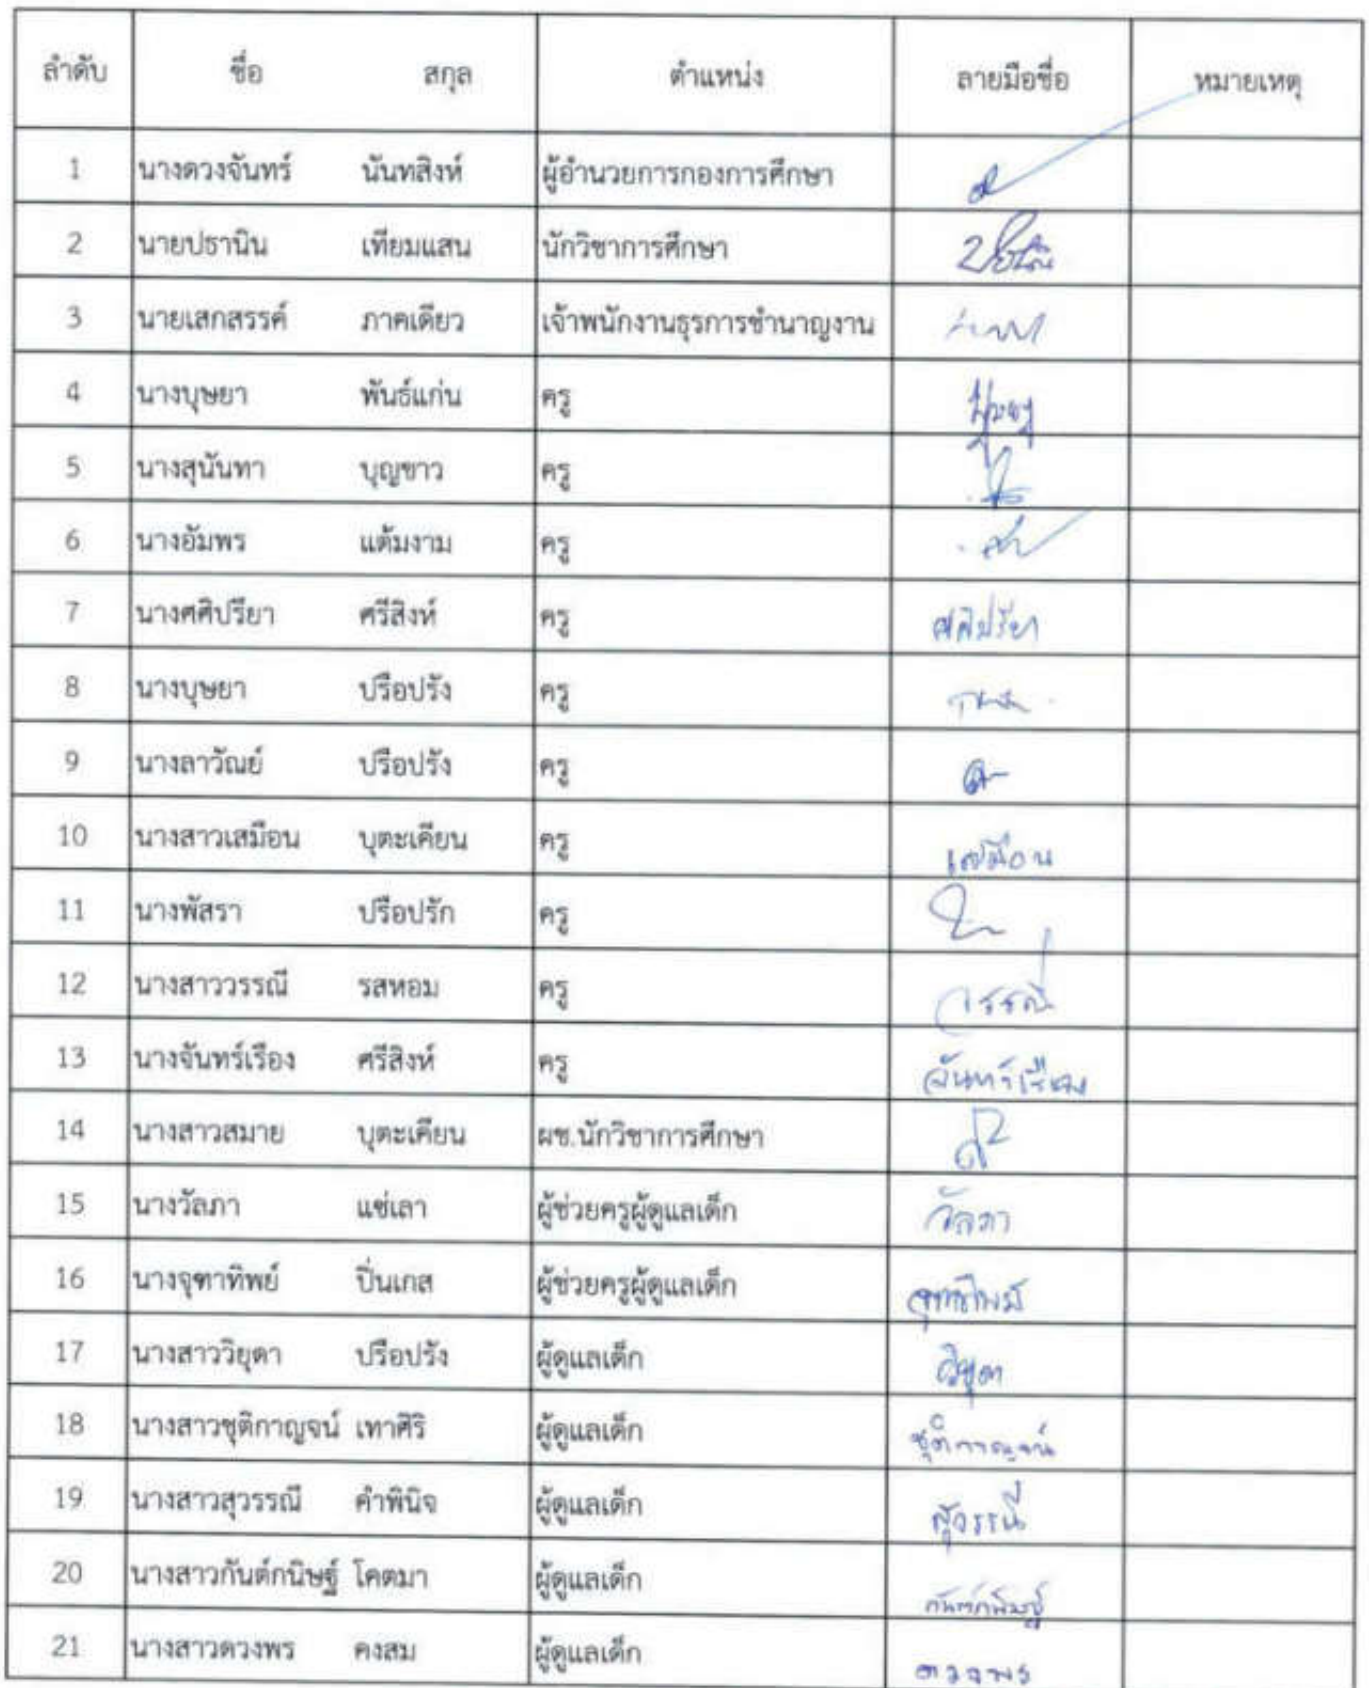 ลำดับ ชื่อ สกุล ตำแหน่ง ลายมือชื่อ หมายเหตุ
1 นางดวงจันทร์ นันทสิงห์ ผู้อำนวยการกองการศึกษา
2 นายปธานิน เทียมแสน นักวิชาการศึกษา
3 นายเสกสรรค์ ภาคเดียว เจ้าพนักงานธุรการชำนาญงาน
4 นางบุษยา พันธ์แก่น ครู บุษยา
5 นางสุนันทา บุญขาว ครู
6 นางอัมพร แต้มงาม ครู
7 นางศศิปรียา ศรีสิงห์ ครู ศศิปรียา
8 นางบุษยา ปรือปรัง ครู
9 นางลาวัณย์ ปรือปรัง ครู
10 นางสาวเสมือน บุตะเคียน ครู เสมือน
11 นางพัสรา ปรือปรัก ครู
12 นางสาววรรณี รสหอม ครู วรรณี
13 นางจันทร์เรือง ศรีสิงห์ ครู จันทร์เรือง
14 นางสาวสมาย บุตะเคียน ผช.นักวิชาการศึกษา
15 นางวัลภา แซ่เลา ผู้ช่วยครูผู้ดูแลเด็ก วัลภา
16 นางจุฑาทิพย์ ปิ่นเกส ผู้ช่วยครูผู้ดูแลเด็ก จุฑาทิพย์
17 นางสาววิยุดา ปรือปรัง ผู้ดูแลเด็ก วิยุดา
18 นางสาวชุติกาญจน์ เทาศิริ ผู้ดูแลเด็ก ชุติกาญจน์
19 นางสาวสุวรรณี คำพินิจ ผู้ดูแลเด็ก สุวรรณี
20 นางสาวกันต์กนิษฐ์ โคตมา ผู้ดูแลเด็ก กันต์กนิษฐ์
21 นางสาวดวงพร คงสม ผู้ดูแลเด็ก ดวงพร